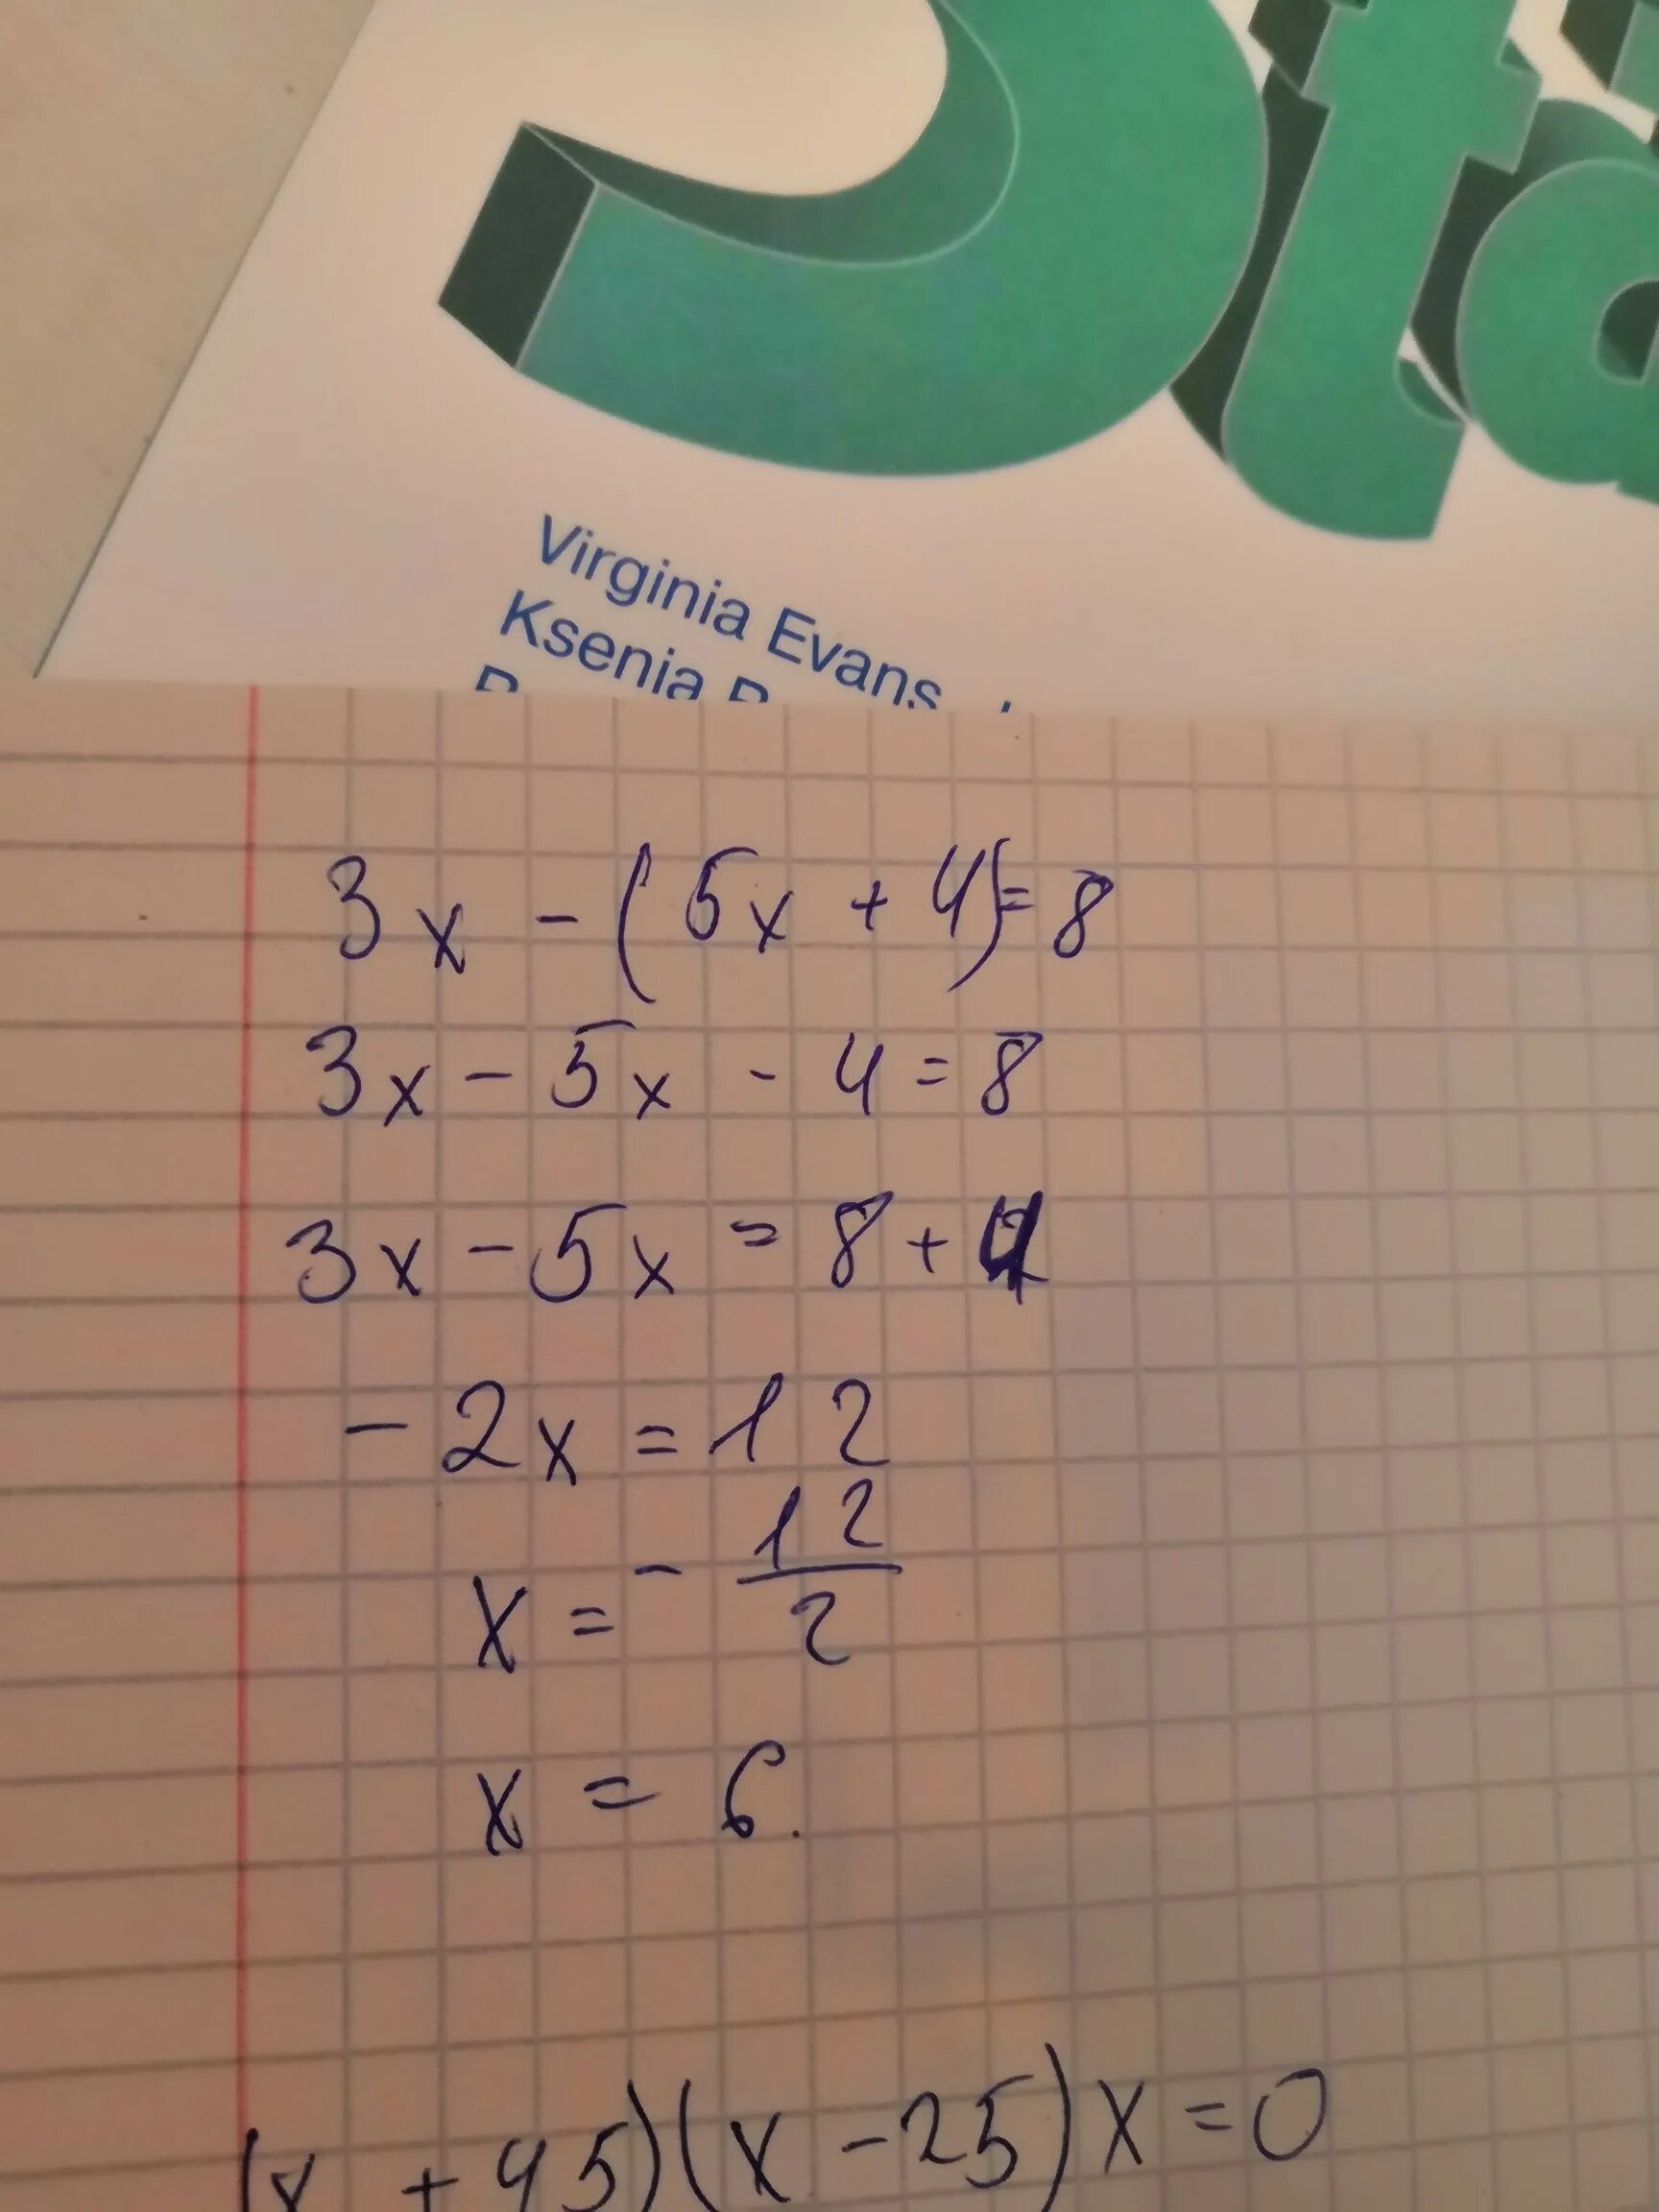 Sta
Virginia Evans
Ksenia
3x - (5x + 4) = 8
3x - 5x - 4 = 8
3x - 5x = 8 + 4
- 2x = 12
x = - 12/2
x = 6.
(x + 45)(x - 25)x = 0